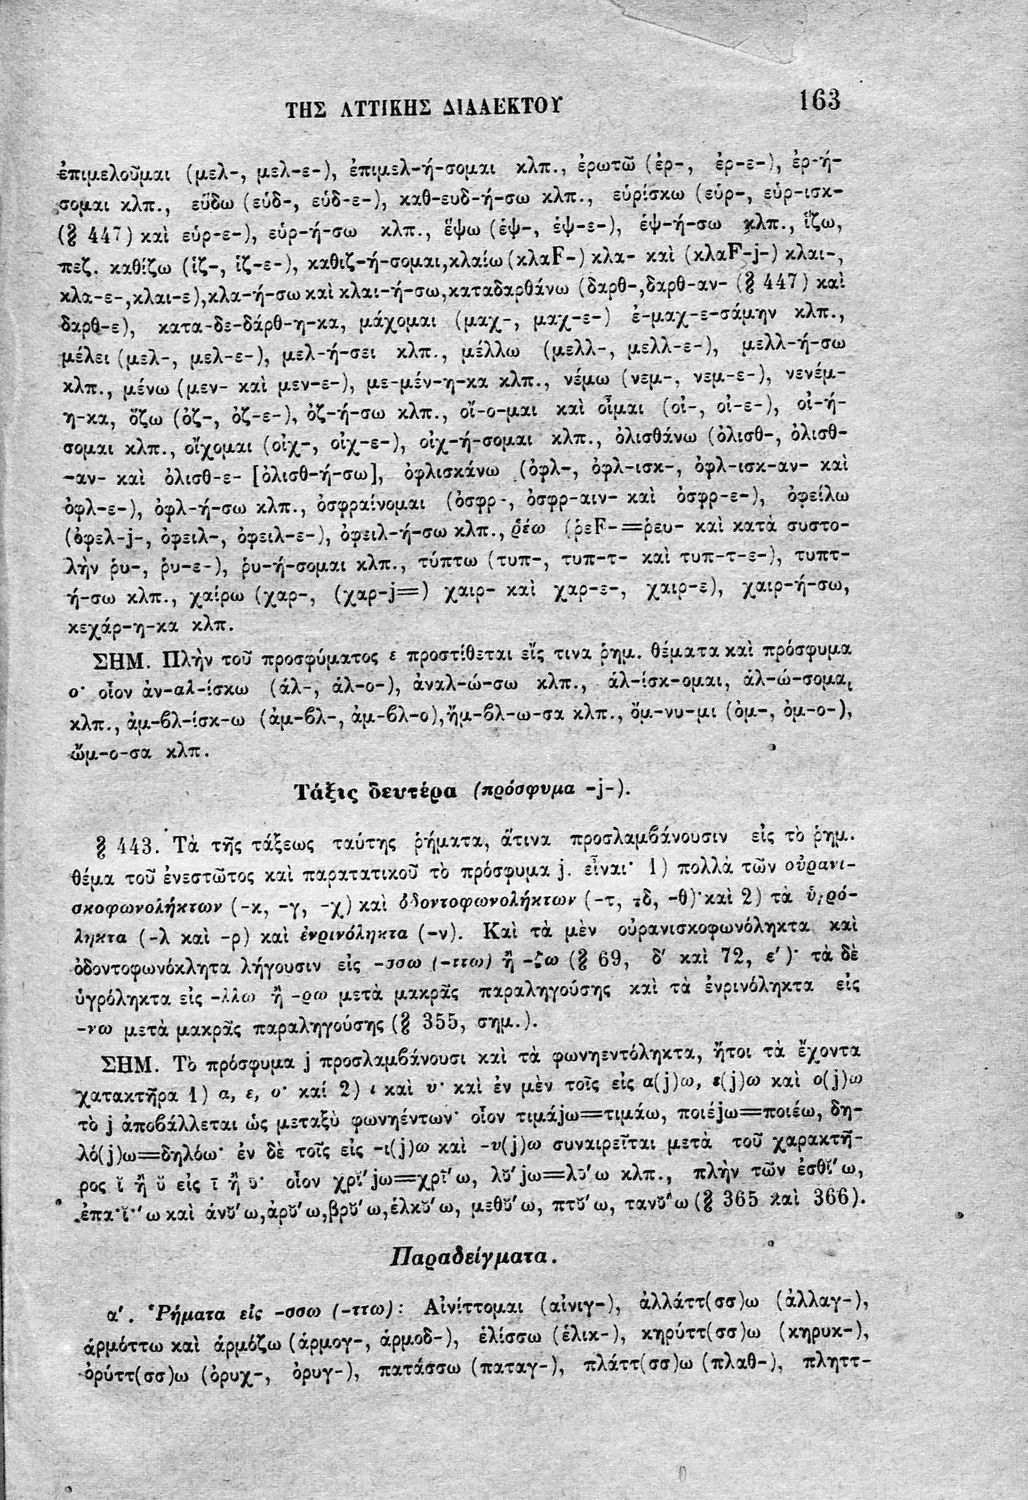 ΤΗΣ ΑΤΤΙΚΗΣ ΔΙΑΛΕΚΤΟΥ 163
ἐπιμελοῦμαι (μελ-, μελ-ε-), ἐπιμελ-ή-σομαι κλπ., ἐρωτῶ (ἐρ-, ἐρ-ε-), ἐρ-ή-
σομαι κλπ., εὕδω (εὑδ-, εὑδ-ε-), καθ-ευδ-ή-σω κλπ., εὑρίσκω (εὑρ-, εὑρ-ισκ-
(§ 447) καὶ εὑρ-ε-), εὑρ-ή-σω κλπ., ἕψω (ἑψ-, ἑψ-ε-), ἑψ-ή-σω κλπ., ἵζω,
πεζ. καθίζω (ἱζ-, ἱζ-ε-), καθιζ-ή-σομαι,κλαίω (κλαF-) κλα- καὶ (κλαF-j-) κλαι-,
κλα-ε-,κλαι-ε),κλα-ή-σω καὶ κλαι-ή-σω,καταδαρθάνω (δαρθ-,δαρθ-αν- (§ 447) καὶ
δαρθ-ε), κατα-δε-δάρθ-η-κα, μάχομαι (μαχ-, μαχ-ε-) ἐ-μαχ-ε-σάμην κλπ.,
μέλει (μελ-, μελ-ε-), μελ-ή-σει κλπ., μέλλω (μελλ-, μελλ-ε-), μελλ-ή-σω
κλπ., μένω (μεν- καὶ μεν-ε-), με-μέν-η-κα κλπ., νέμω (νεμ-, νεμ-ε-), νενέμ-
η-κα, ὄζω (ὀζ-, ὀζ-ε-), ὀζ-ή-σω κλπ., οἴ-ο-μαι καὶ οἶμαι (οἰ-, οἰ-ε-), οἰ-ή-
σομαι κλπ., οἴχομαι (οἰχ-, οἰχ-ε-), οἰχ-ή-σομαι κλπ., ὀλισθάνω (ὀλισθ-, ὀλισθ-
-αν- καὶ ὀλισθ-ε- [ὀλισθ-ή-σω], ὀφλισκάνω (ὀφλ-, ὀφλ-ισκ-, ὀφλ-ισκ-αν- καὶ
ὀφλ-ε-), ὀφλ-ή-σω κλπ., ὀσφραίνομαι (ὀσφρ-, ὀσφρ-αιν- καὶ ὀσφρ-ε-), ὀφείλω
(ὀφελ-j-, ὀφειλ-, ὀφειλ-ε-), ὀφειλ-ή-σω κλπ., ῥέω (ῥεF-=ῥευ- καὶ κατὰ συστο-
λὴν ῥυ-, ῥυ-ε-), ῥυ-ή-σομαι κλπ., τύπτω (τυπ-, τυπ-τ- καὶ τυπ-τ-ε-), τυπτ-
ή-σω κλπ., χαίρω (χαρ-, (χαρ-j=) χαιρ- καὶ χαρ-ε-, χαιρ-ε), χαιρ-ή-σω,
κεχάρ-η-κα κλπ.
ΣΗΜ. Πλὴν τοῦ προσφύματος ε προστίθεται εἴς τινα ῥημ. θέματα καὶ πρόσφυμα
ο· οἷον ἀν-αλ-ίσκω (ἁλ-, ἁλ-ο-), ἀναλ-ώ-σω κλπ., ἁλ-ίσκ-ομαι, ἁλ-ώ-σομαι
κλπ., ἀμ-βλ-ίσκ-ω (ἀμ-βλ-, ἀμ-βλ-ο),ἤμ-βλ-ω-σα κλπ., ὄμ-νυ-μι (ὀμ-, ὀμ-ο-),
ὤμ-ο-σα κλπ.
Τάξις δευτέρα (πρόσφυμα -j-).
§ 443. Τὰ τῆς τάξεως ταύτης ῥήματα, ἅτινα προσλαμβάνουσιν εἰς τὸ ῥημ.
θέμα τοῦ ἐνεστῶτος καὶ παρατατικοῦ τὸ πρόσφυμα j. εἶναι· 1) πολλὰ τῶν οὐρανι-
σκοφωνολήκτων (-κ, -γ, -χ) καὶ ὀδοντοφωνολήκτων (-τ, -δ, -θ)· καὶ 2) τὰ ὑγρό-
ληκτα (-λ καὶ -ρ) καὶ ἐνρινόληκτα (-ν). Καὶ τὰ μὲν οὐρανισκοφωνόληκτα καὶ
ὀδοντοφωνόκλητα λήγουσιν εἰς -σσω (-ττω) ἢ -ζω (§ 69, δ′ καὶ 72, ε′)· τὰ δὲ
ὑγρόληκτα εἰς -λλω ἢ -ρω μετὰ μακρᾶς παραληγούσης καὶ τὰ ἐνρινόληκτα εἰς
-νω μετὰ μακρᾶς παραληγούσης (§ 355, σημ.).
ΣΗΜ. Τὸ πρόσφυμα j προσλαμβάνουσι καὶ τὰ φωνηεντόληκτα, ἤτοι τὰ ἔχοντα
χατακτῆρα 1) α, ε, ο· καί 2) ι καὶ υ· καὶ ἐν μὲν τοῖς εἰς α(j)ω, ε(j)ω καὶ ο(j)ω
τὸ j ἀποβάλλεται ὡς μεταξὺ φωνηέντων· οἷον τιμάjω=τιμάω, ποιέjω=ποιέω, δη-
λό(j)ω=δηλόω· ἐν δὲ τοῖς εἰς -ι(j)ω καὶ -υ(j)ω συναιρεῖται μετὰ τοῦ χαρακτῆ-
ρος ῐ ἢ ῠ εἰς ῑ ἢ ῡ· οἷον χρῐ′jω=χρῑ′ω, λῠ′jω=λῡ′ω κλπ., πλὴν τῶν ἐσθῐ′ω,
ἐπαΐ′ω καὶ ἀνῠ′ω,ἀρῠ′ω,βρῠ′ω,ἑλκῠ′ω, μεθῠ′ω, πτῠ′ω, τανῠ′ω (§ 365 καὶ 366).
Παραδείγματα.
α′. Ῥήματα εἰς -σσω (-ττω): Αἰνίττομαι (αἰνιγ-), ἀλλάττ(σσ)ω (ἀλλαγ-),
ἁρμόττω καὶ ἁρμόζω (ἁρμογ-, ἁρμοδ-), ἑλίσσω (ἑλικ-), κηρύττ(σσ)ω (κηρυκ-),
ὀρύττ(σσ)ω (ὀρυχ-, ὀρυγ-), πατάσσω (παταγ-), πλάττ(σσ)ω (πλαθ-), πληττ-